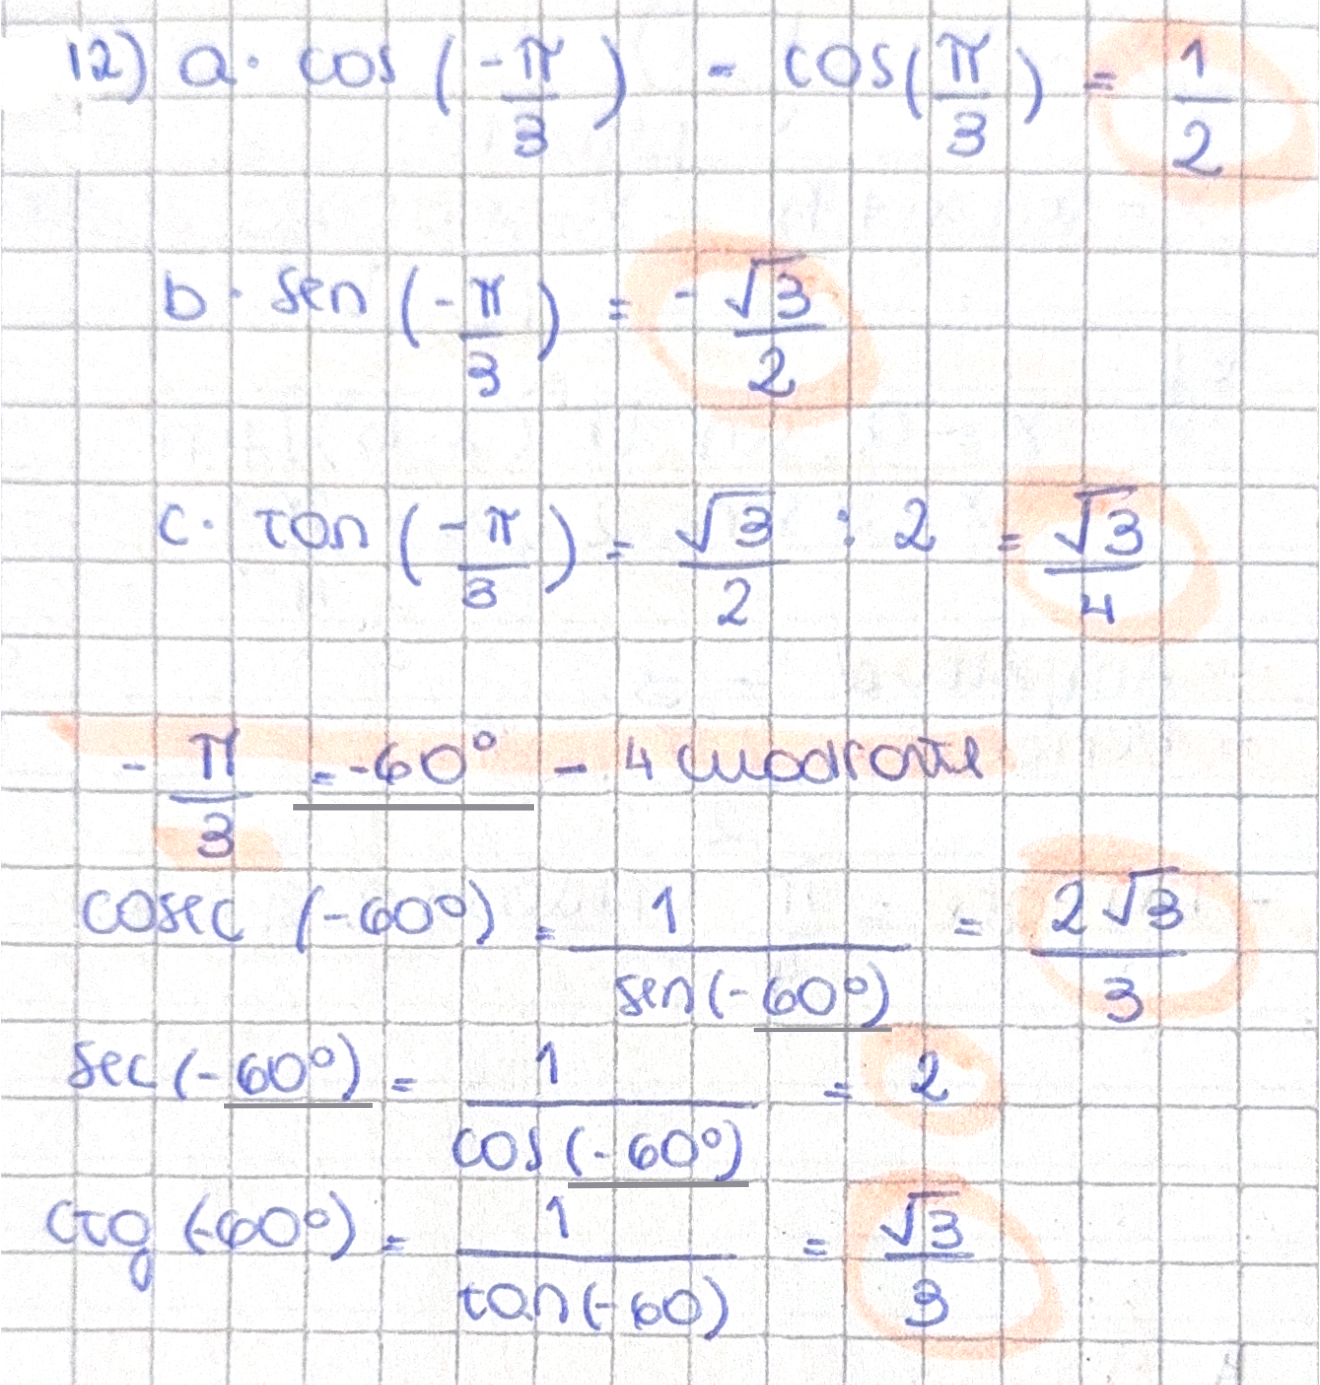 12) a. cos (-π/3) - cos(π/3) = 1/2
b. sen (-π/3) = - √3/2
c. tan (-π/3) = √3/2 : 2 = √3/4
- π/3 = -60° - 4 cuadrante
cosec (-60°) = 1/sen(-60°) = 2√3/3
sec (-60°) = 1/cos(-60°) = 2
ctg (-60°) = 1/tan(-60) = √3/3